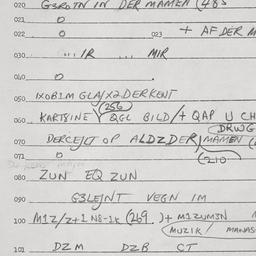 020 G3ROTN IN DER MAMEN (48S
021 O
022 O 023 + AF DER M
030 ... IR ... MIR
040 O .
050 IXOBIM GLAJX2DERKENT
(256)
060 KARTSINE QGL BILD/+ QAP U CH
DRWG
070 DERCEJLT OP ALDZDER/MAMEN
071 O (210
080 ZUN EQ ZUN
090 G3LEJNT VEGN IM
100 M1Z/Z+1 N8-1K (249.)+ M1ZUM3N
MUZIK/ MANAS
101 DZM DZB CT